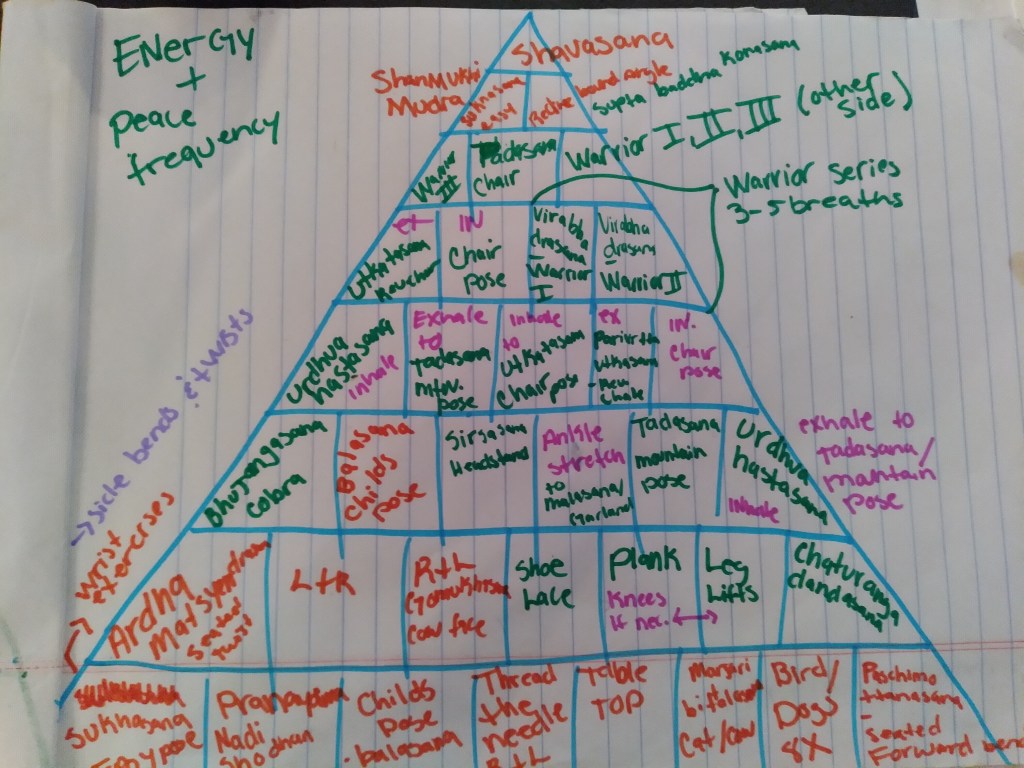 ENERGY
+
peace
frequency
Shavasana
Shanmukhi
Mudra
sukhasana
easy
Recline bound Angle
supta baddha Konasana
Warrior I, II, III (other
side)
Warrior
III
Tadasana
Chair
Warrior series
3-5 breaths
ex
Utkatasana
IN
Chair
pose
Virabha
drasana
Warrior
I
Virabha
drasana
Warrior II
Urdhva
hastasana
inhale
Exhale
to
Tadasana
mtn.
pose
inhale
to
Utkatasana
Chair pose
ex
IN.
Chair
pose
Bhujangasana
cobra
Balasana
Childs
pose
Sirsasana
Headstand
Ankle
stretch
to
malasana/
Garland
Tadasana
mountain
pose
Urdhva
hastasana
Inhale
exhale to
Tadasana/
mountain
pose
→ side bends & twists
wrist
exercises
Ardha
matsyendrasana
seated
twist
L+R
R+L
cow face
Shoe
Lace
Plank
Knees
if nec.
Leg
Lifts
Chaturanga
dandasana
sukhasana
Easy pose
Pranayama
Nadi
Shodhan
Childs
pose
-balasana
Thread
the
needle
R+L
Table
TOP
Marjari
bitilasana
Cat/Cow
Bird/
Dogs
8X
Paschimo
ttanasana
-
seated
Forward bend